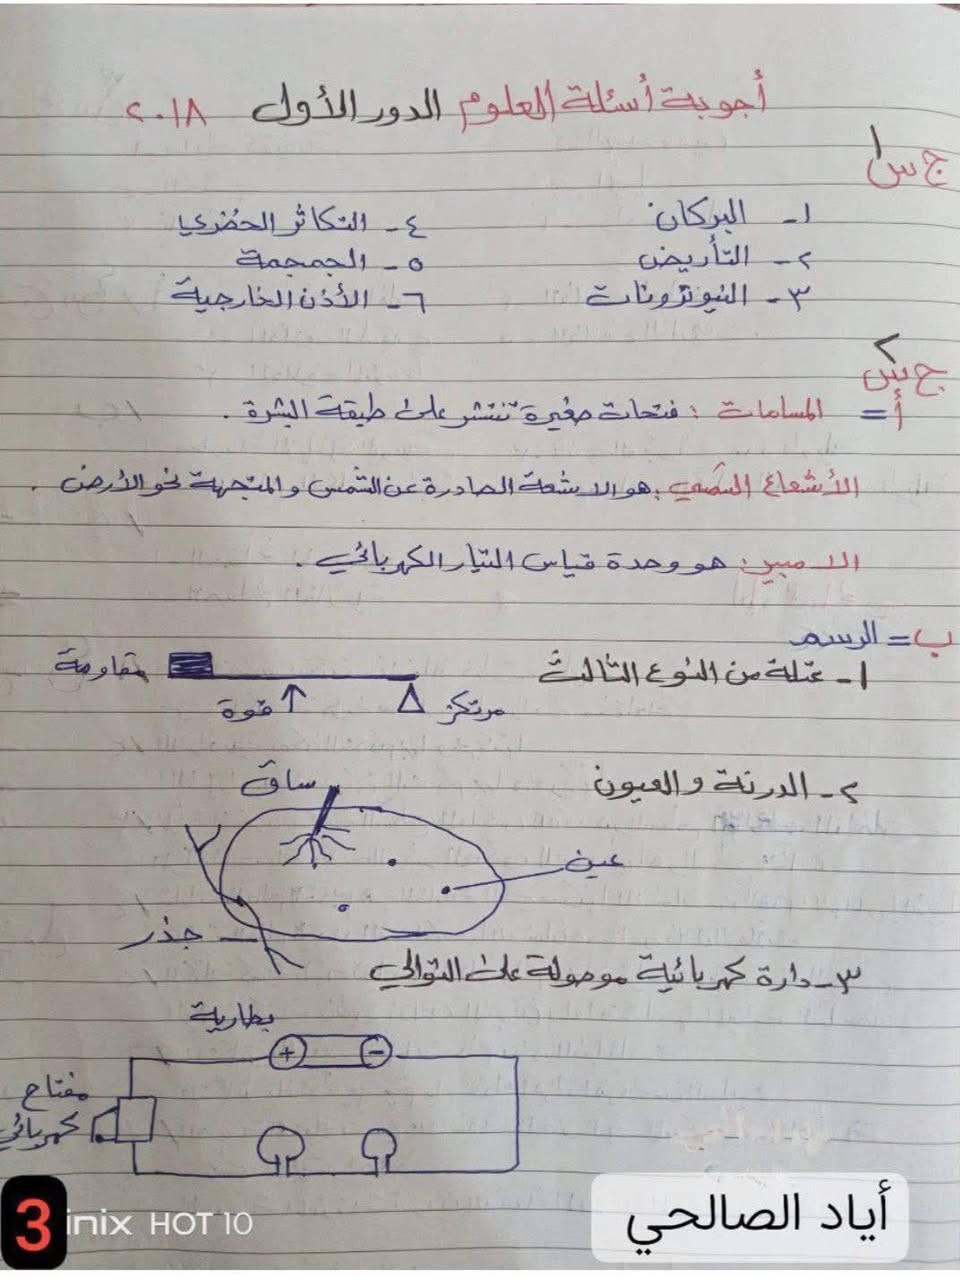 أجوبة أسئلة العلوم الدور الأول ٢٠١٨
ج س١
١- البركان
٢- التأريض
٣- النيوترونات
٤- التكاثر الخضري
٥- الجمجمة
٦- الأذن الخارجية
ج س٢
أ= المسامات : فتحات صغيرة تنتشر على طبقة البشرة .
الأشعاع الشمسي : هو الاشعة الصادرة عن الشمس والمتجهة نحو الأرض .
الامبير: هو وحدة قياس التيار الكهربائي .
ب= الرسم
١- عتلة من النوع الثالث
مقاومة
قوة
مرتكز
٢- الدرنة والعيون
ساق
عين
جذر
٣- دارة كهربائية موصولة على التوالي
بطارية
+ -
مفتاح
كهربائي
أياد الصالحي
3
inix HOT 10